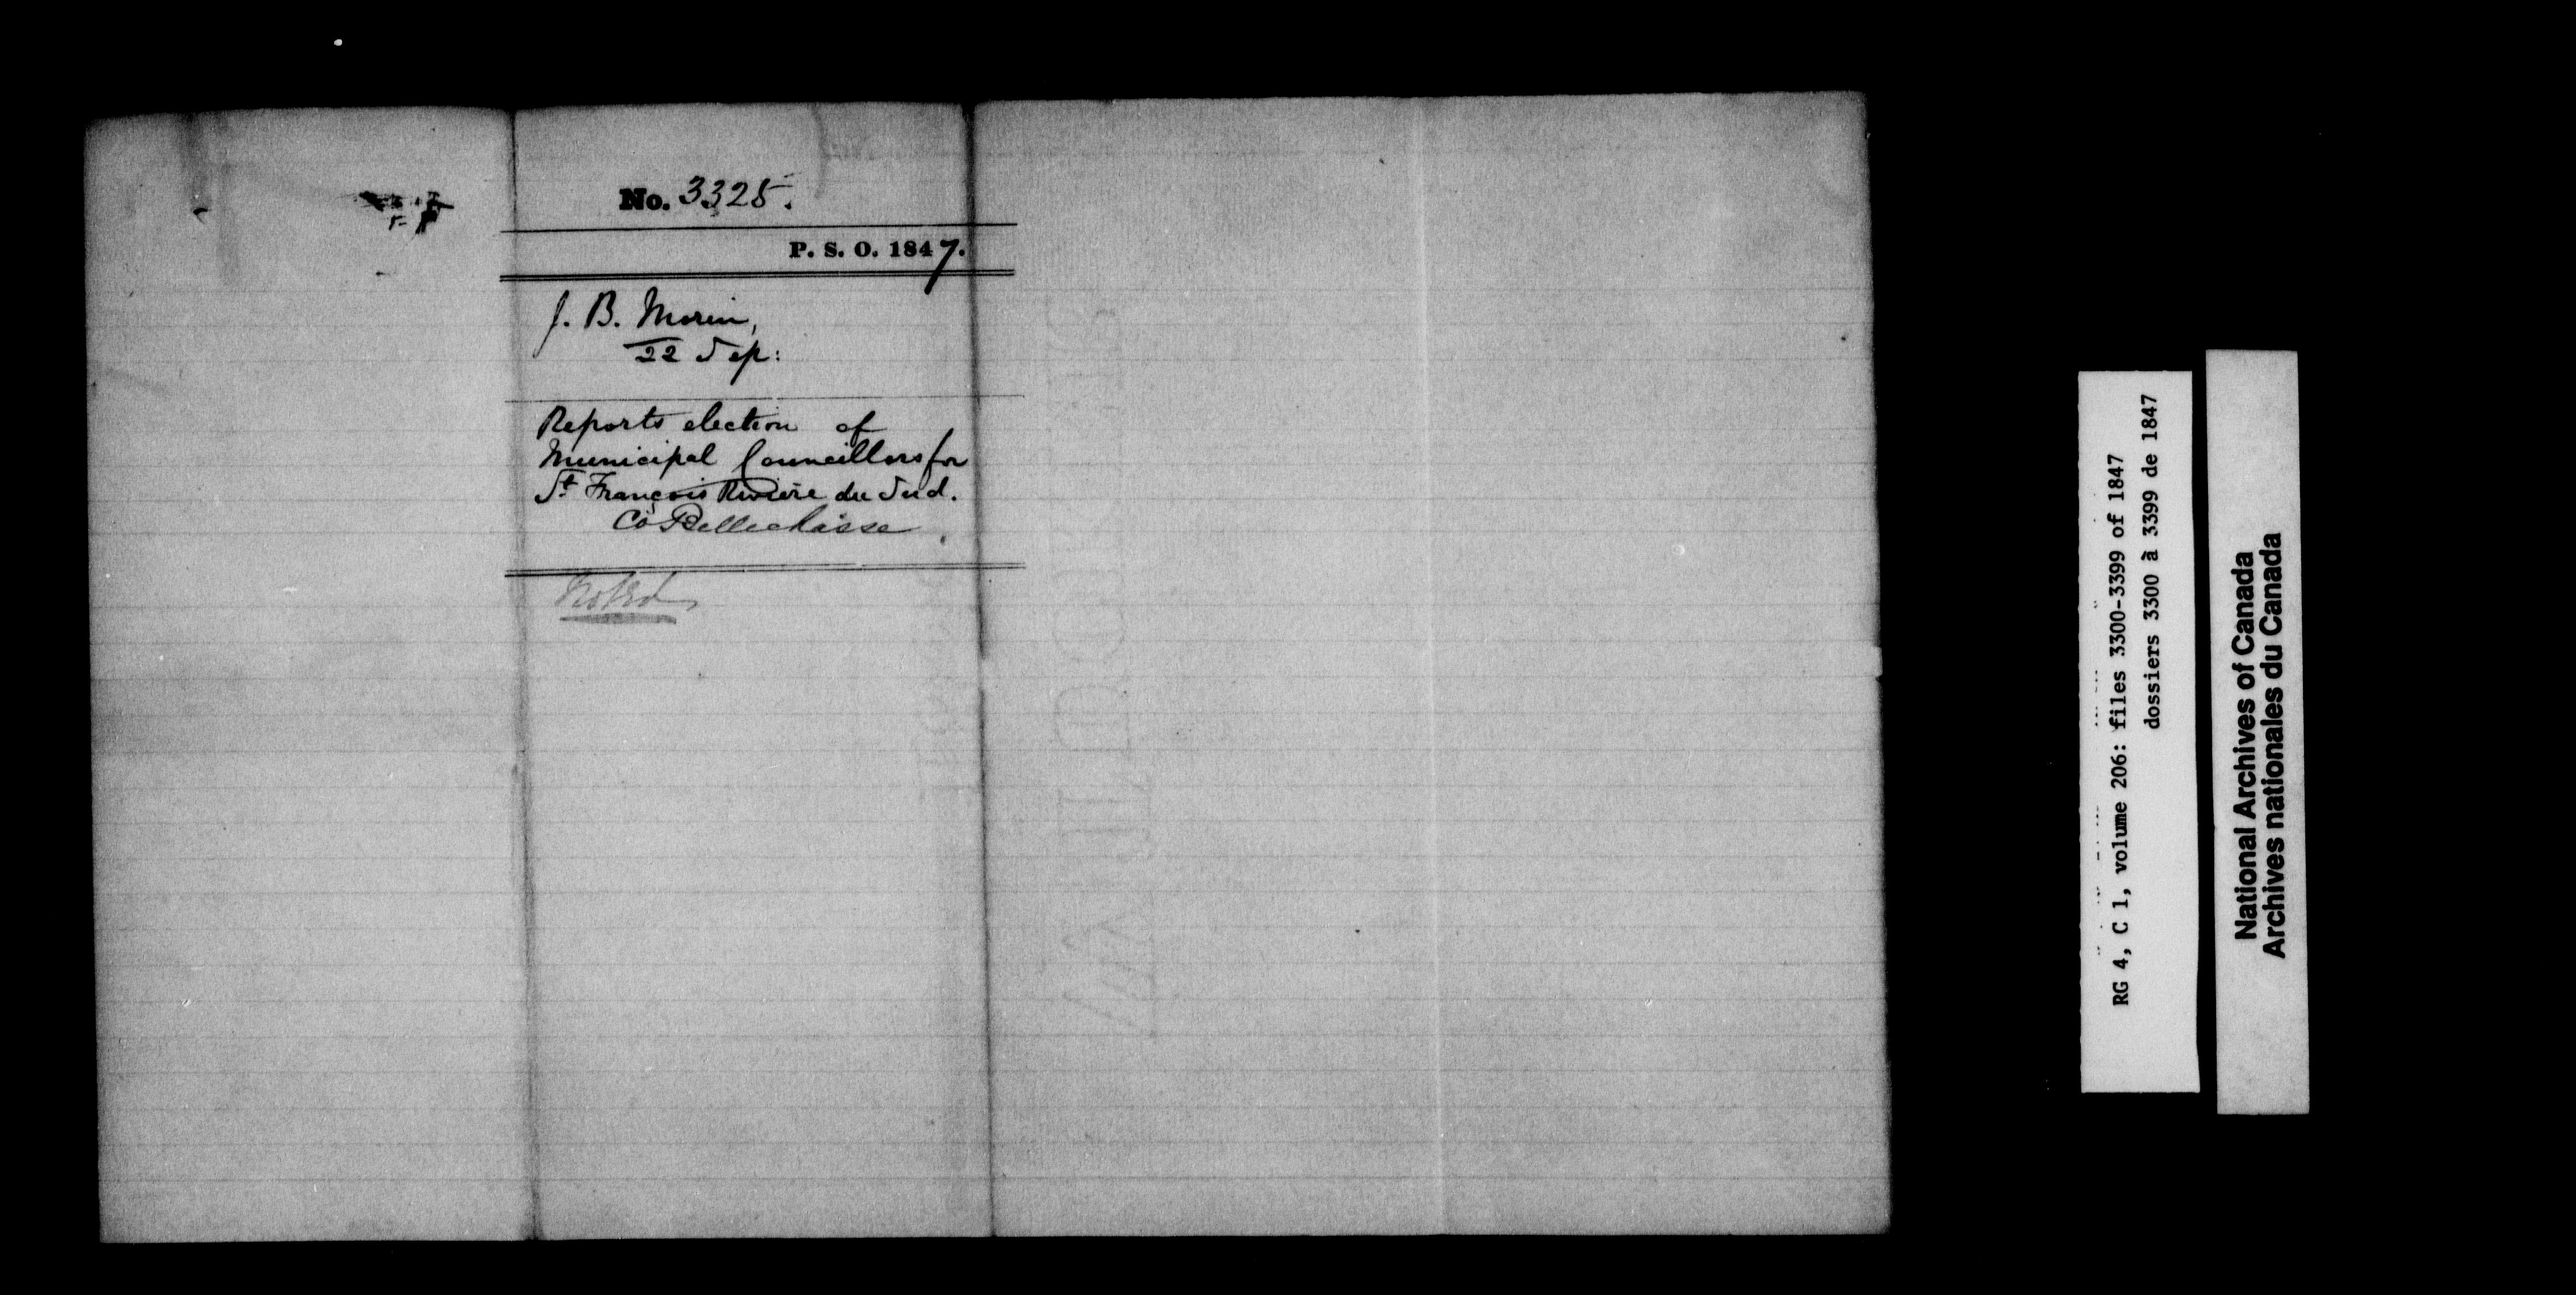 No. 3325.
P. S. O. 1847.
J. B. Morin,
22 Sep:
Reports election of
Municipal Councillors for
St François Rivière du Sud.
Co Bellechasse
Noted
RG 4, C 1, volume 206: files 3300-3399 of 1847
dossiers 3300 à 3399 de 1847
National Archives of Canada
Archives nationales du Canada